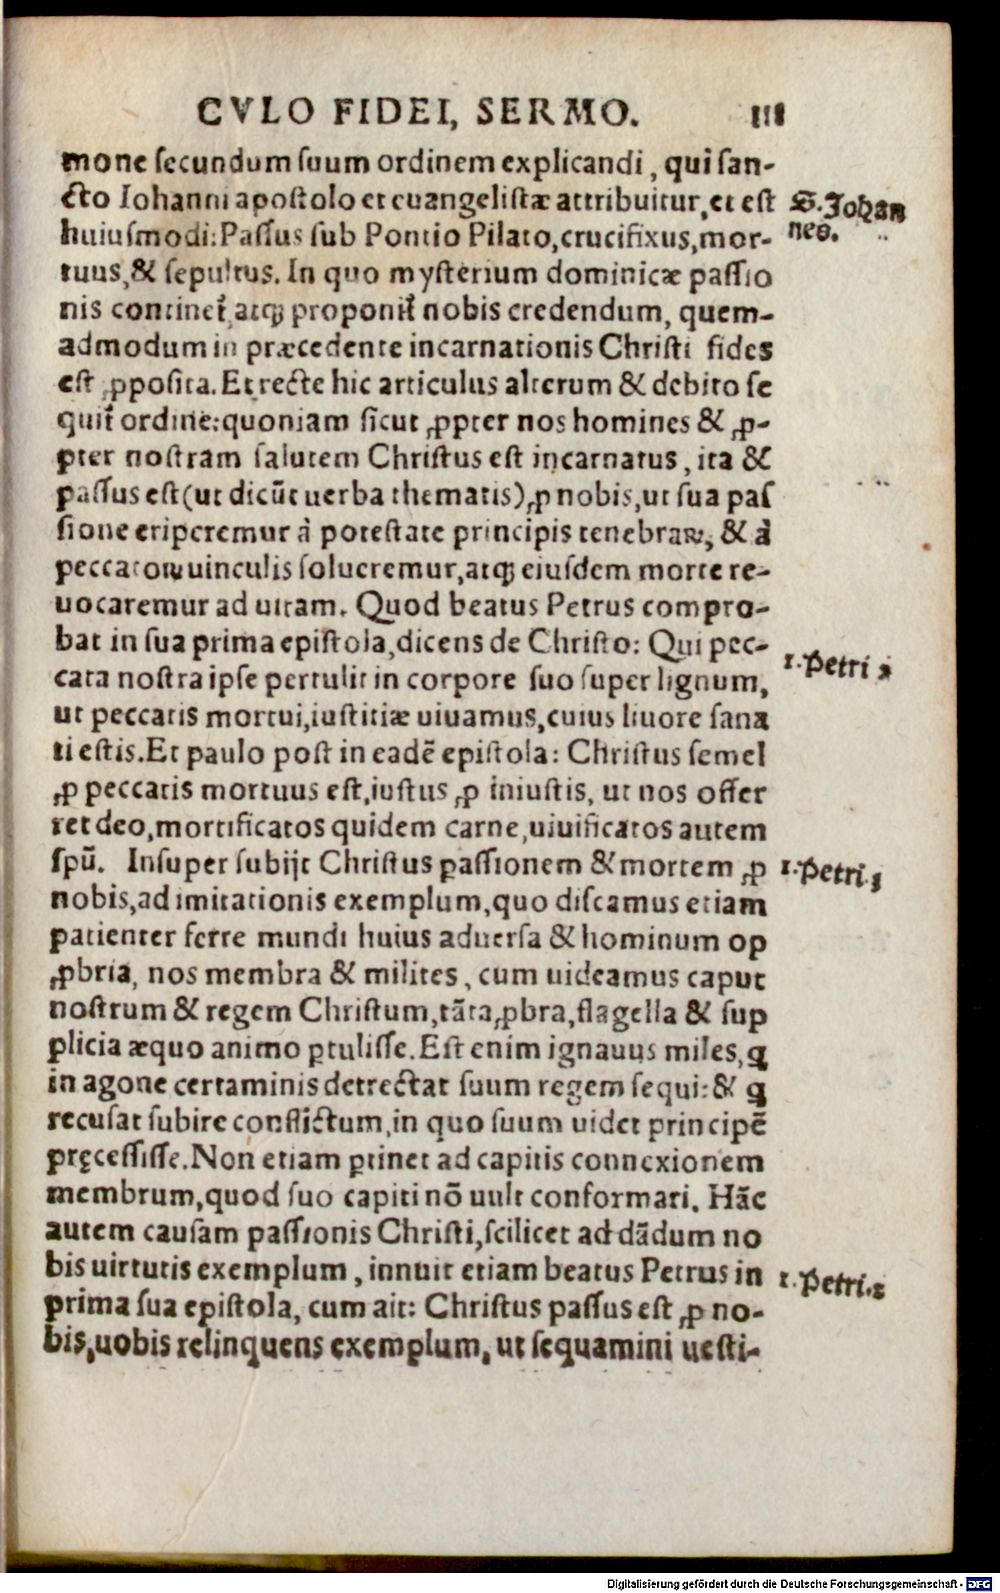 CVLO FIDEI, SERMO. III
mone ſecundum ſuum ordinem explicandi, qui ſan-
cto Iohanni apoſtolo et euangeliſtæ attribuitur, et eſt
S. Johan
huiuſmodi: Paſſus ſub Pontio Pilato, crucifixus, mor-
nes.
tuus, & ſepultus. In quo myſterium dominicæ paſſio
nis continet᷑, atqꝫ proponit᷑ nobis credendum, quem-
admodum in præcedente incarnationis Chriſti fides
eſt ꝓpoſita. Et recte hic articulus alterum & debito ſe
quit᷑ ordine: quoniam ſicut ꝓpter nos homines & ꝓ-
pter noſtram ſalutem Chriſtus eſt incarnatus, ita &
paſſus eſt (ut dicūt uerba thematis) ꝓ nobis, ut ſua paſ
ſione eriperemur à poteſtate principis tenebraꝝ, & à
peccatoꝝ uinculis ſolueremur, atqꝫ eiuſdem morte re-
uocaremur ad uitam. Quod beatus Petrus compro-
bat in ſua prima epiſtola, dicens de Chriſto: Qui pec-
1. Petri 2
cata noſtra ipſe pertulit in corpore ſuo ſuper lignum,
ut peccatis mortui, iuſtitiæ uiuamus, cuius liuore ſana
ti eſtis. Et paulo poſt in eadē epiſtola: Chriſtus ſemel
ꝓ peccatis mortuus eſt, iuſtus ꝓ iniuſtis, ut nos offer
ret deo, mortificatos quidem carne, uiuificatos autem
ſpū. Inſuper ſubijt Chriſtus paſſionem & mortem ꝓ
1. Petri. 3
nobis, ad imitationis exemplum, quo diſcamus etiam
patienter ferre mundi huius aduerſa & hominum op
ꝓbria, nos membra & milites, cum uideamus caput
noſtrum & regem Chriſtum, tāta ꝓbra, flagella & ſup
plicia æquo animo ꝑtuliſſe. Eſt enim ignauus miles, ꝗ
in agone certaminis detrectat ſuum regem ſequi: & ꝗ
recuſat ſubire conflictum, in quo ſuum uidet principē
pręceſſiſſe. Non etiam ꝑtinet ad capitis connexionem
membrum, quod ſuo capiti nō uult conformari. Hāc
autem cauſam paſſionis Chriſti, ſcilicet ad dādum no
bis uirtutis exemplum, innuit etiam beatus Petrus in
1. Petri. 2
prima ſua epiſtola, cum ait: Chriſtus paſſus eſt ꝓ no-
bis, uobis relinquens exemplum, ut ſequamini ueſti-
Digitalisierung gefördert durch die Deutsche Forschungsgemeinschaft - DFG